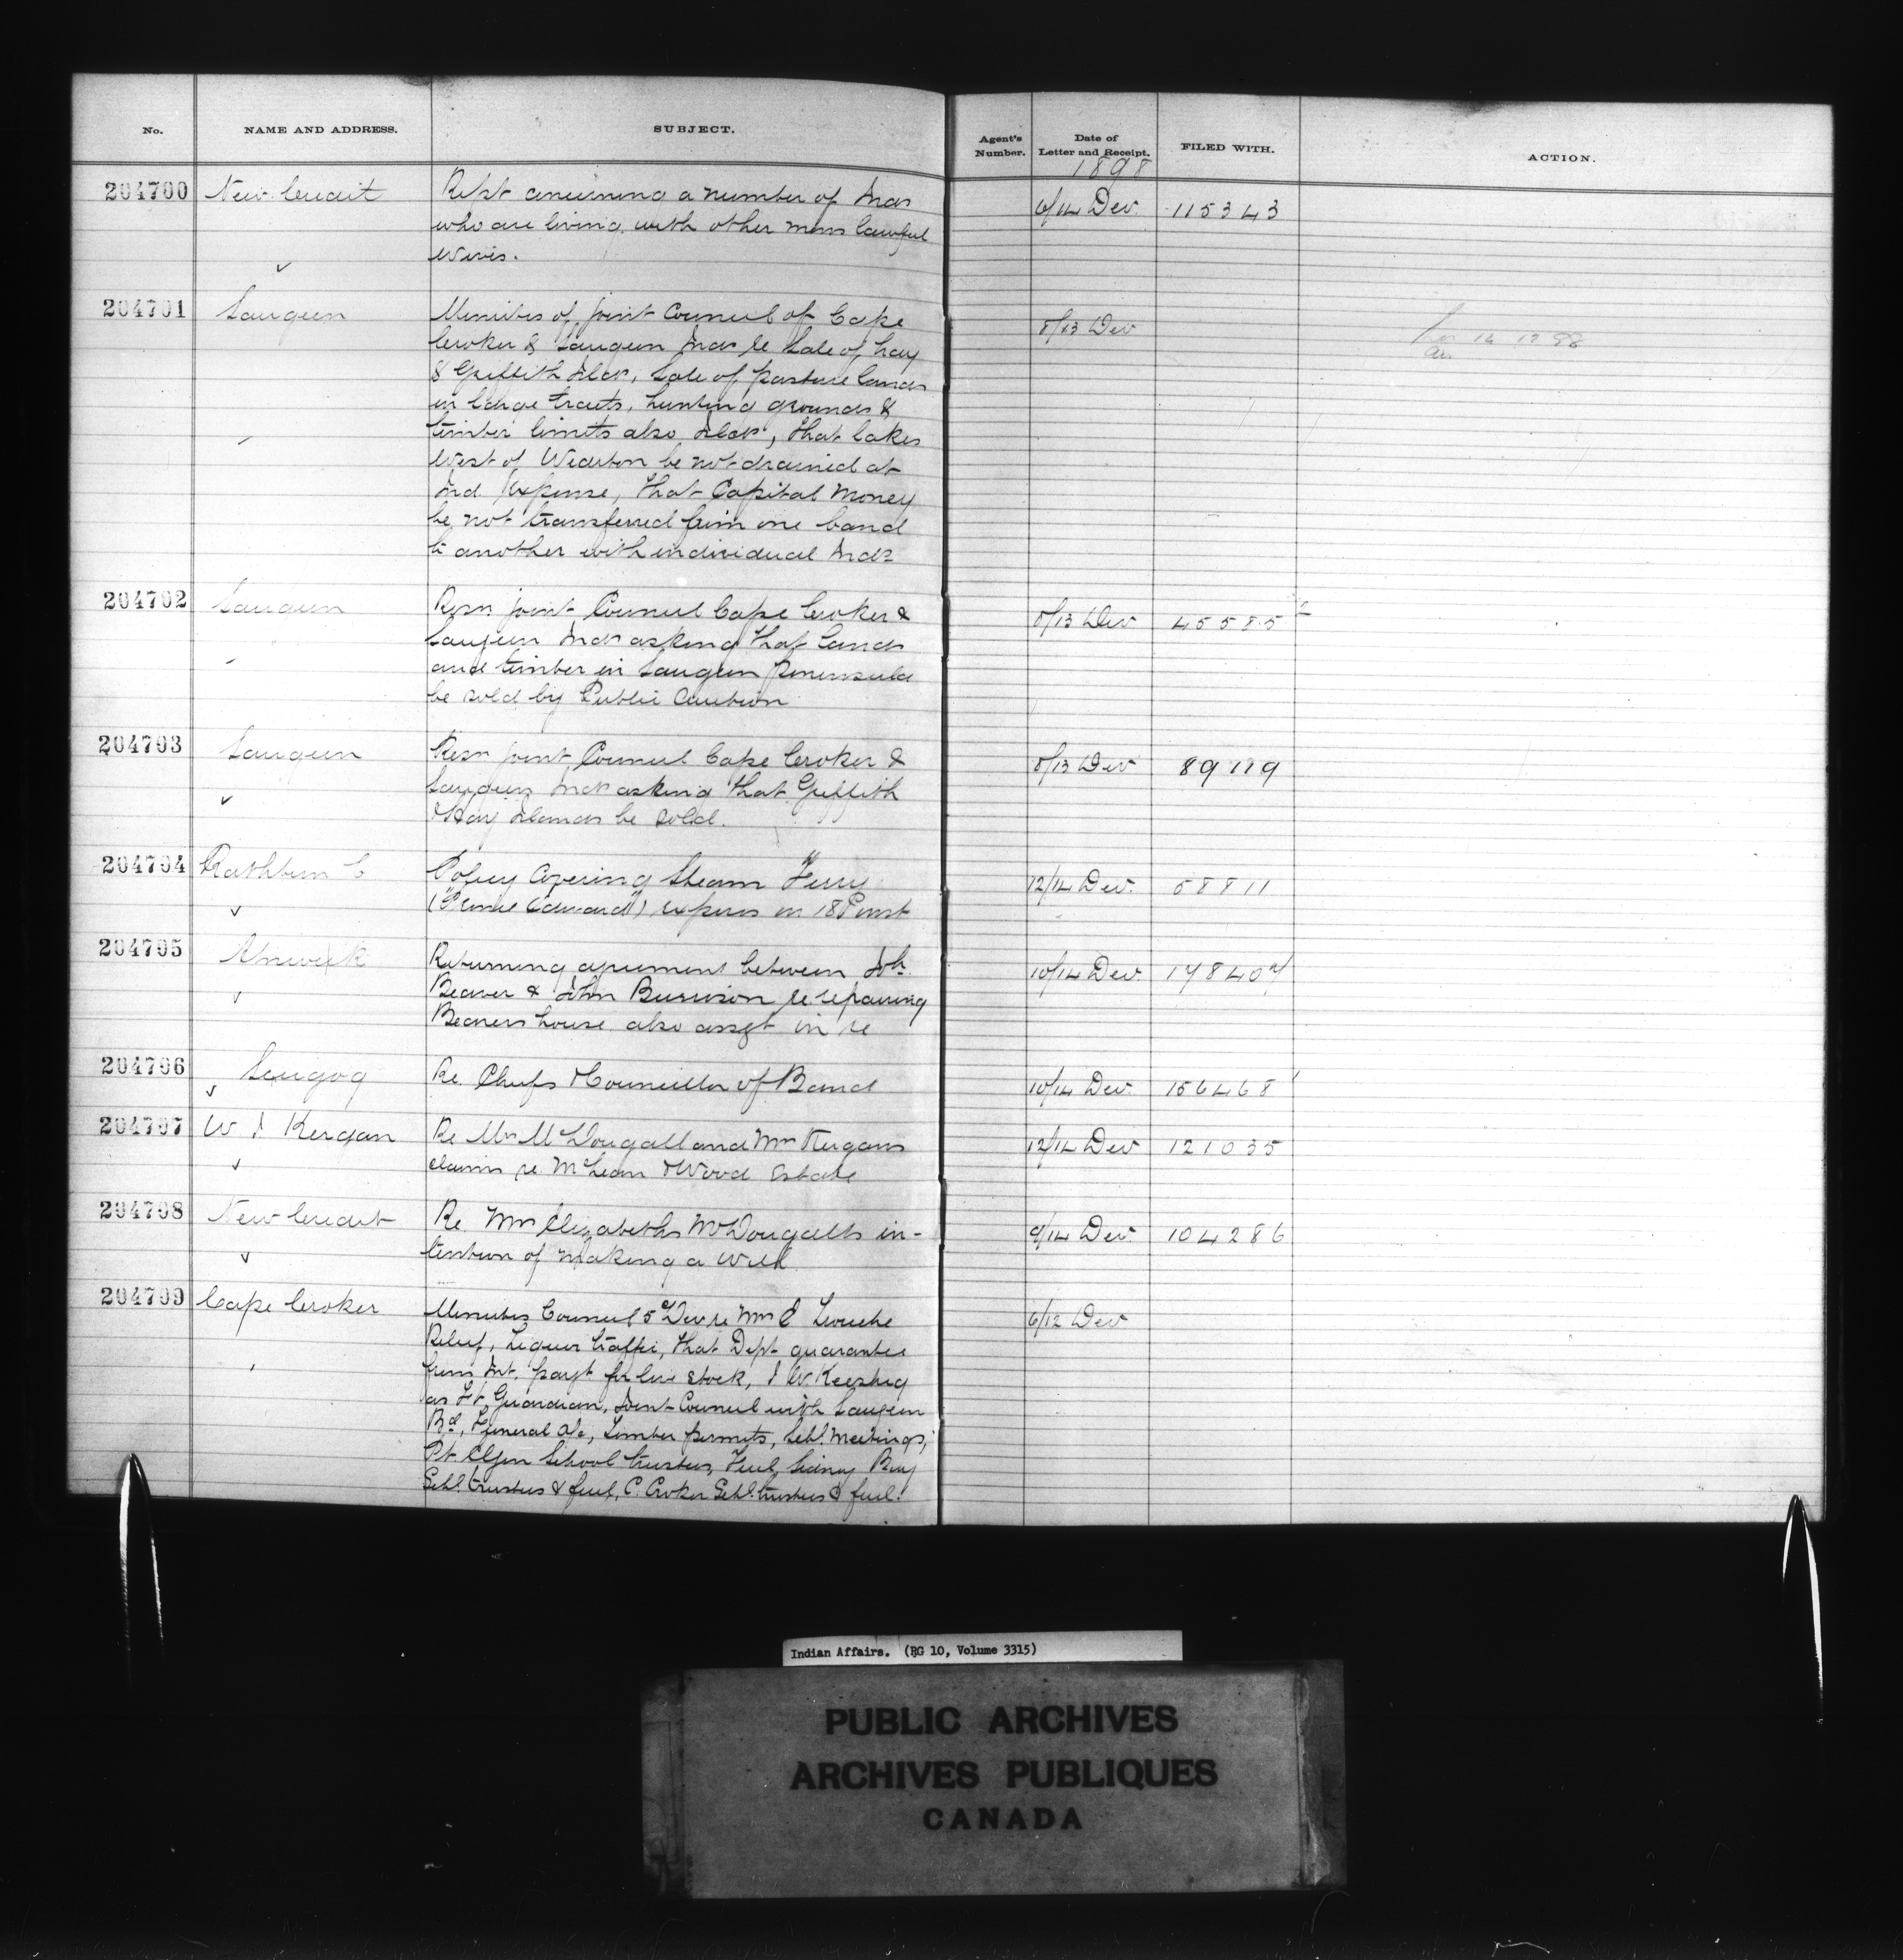 No. NAME AND ADDRESS. SUBJECT. Agent's Number. Date of Letter and Receipt. FILED WITH. ACTION.
1898
204700 New Credit a number of Inds 6/14 Dec. 115343
who are living with other mens lawful
wives.
204701 Saugeen Minutes of joint Council of Cape 8/13 Dec
Croker & Saugeen Inds re Sale of Hay
& Griffith Ilds, Sale of pasture lands
in large tracts, hunting grounds &
timber limits also Ilds, that lakes
West of Wiarton be not drained at
Ind Expense, that Capital Money
be not transferred from one band
to another with individual Inds
204702 Saugeen Resn joint Council Cape Croker & 8/13 Dec 45585
Saugeen Inds asking that lands
and timber in Saugeen peninsula
be sold by Public Auction
204703 Saugeen Resn joint Council Cape Croker & 8/13 Dec
Saugeen Inds asking that Griffith
& Hay Islands be sold.
204704 Rathbun C Policy Covering Steam Ferry 12/14 Dec. 58811
("Prince Edward") expires on 18 Inst
204705 Alnwick Returning agreement between 10/14 Dec.
Beaver & John re repairing
Beavers house also in re
204706 Scugog Re. Chiefs & Councillor of Band 10/14 Dec. 156468
204707 W J Kergan Re Mrs McDougall and Mrs Kergans 12/14 Dec 121035
claims re McLean & Wood Estate
204708 New Credit Re. Mrs Elizabeths McDougalls in- 9/14 Dec. 104286
tention of making a Will
204709 Cape Croker Minutes Council 5th Dec re Mrs E 6/12 Dec
Relief, Liquor traffic, that Dept guarantee
from Int. payt for live stock, J W. Keeshig
as Guardian, Joint Council with Saugeen
Bd, Funeral a/c, Timber permits, Schl. Meetings,
Pt Elgin School trustees, Fuel, Sidney Bay
Schl. trustees & fuel, C. Croker Schl. trustees & fuel.
Indian Affairs. (RG 10, Volume 3315)
PUBLIC ARCHIVES
ARCHIVES PUBLIQUES
CANADA